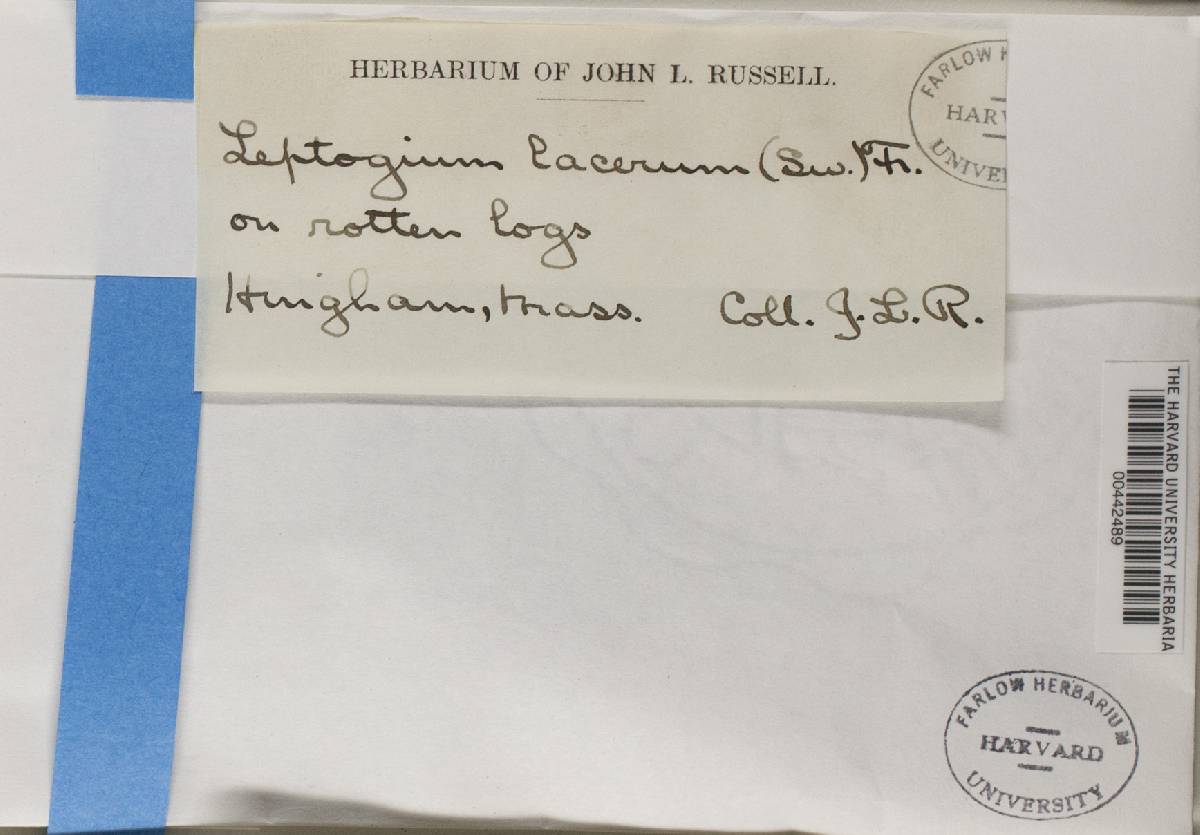 HERBARIUM OF JOHN L. RUSSELL.
Leptogium lacerum (Sw.) Fr.
on rotten logs
Hingham, Mass. Coll. J. L. R.
FARLOW H
HARV
UNIVE
THE HARVARD UNIVERSITY HERBARIA
00442489
FARLOW HERBARIUM
HARVARD
UNIVERSITY